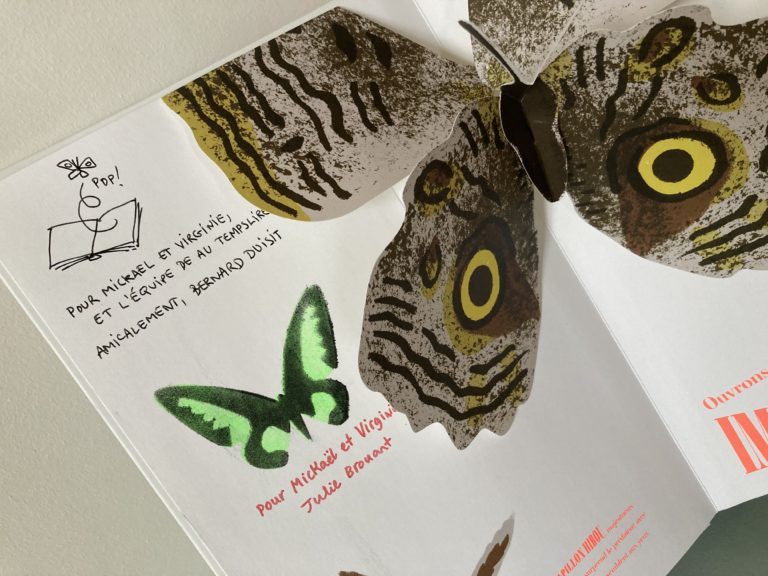 POP!
POUR MICKAEL ET VIRGINIE,
ET L'ÉQUIPE DE AU TEMPSLIRE
AMICALEMENT, BERNARD DUISIT
Pour Mickaël et Virgini
Julie Brouant
Ouvrons
IM
PAPILLON HIBOU,
surprend le prédateur avec